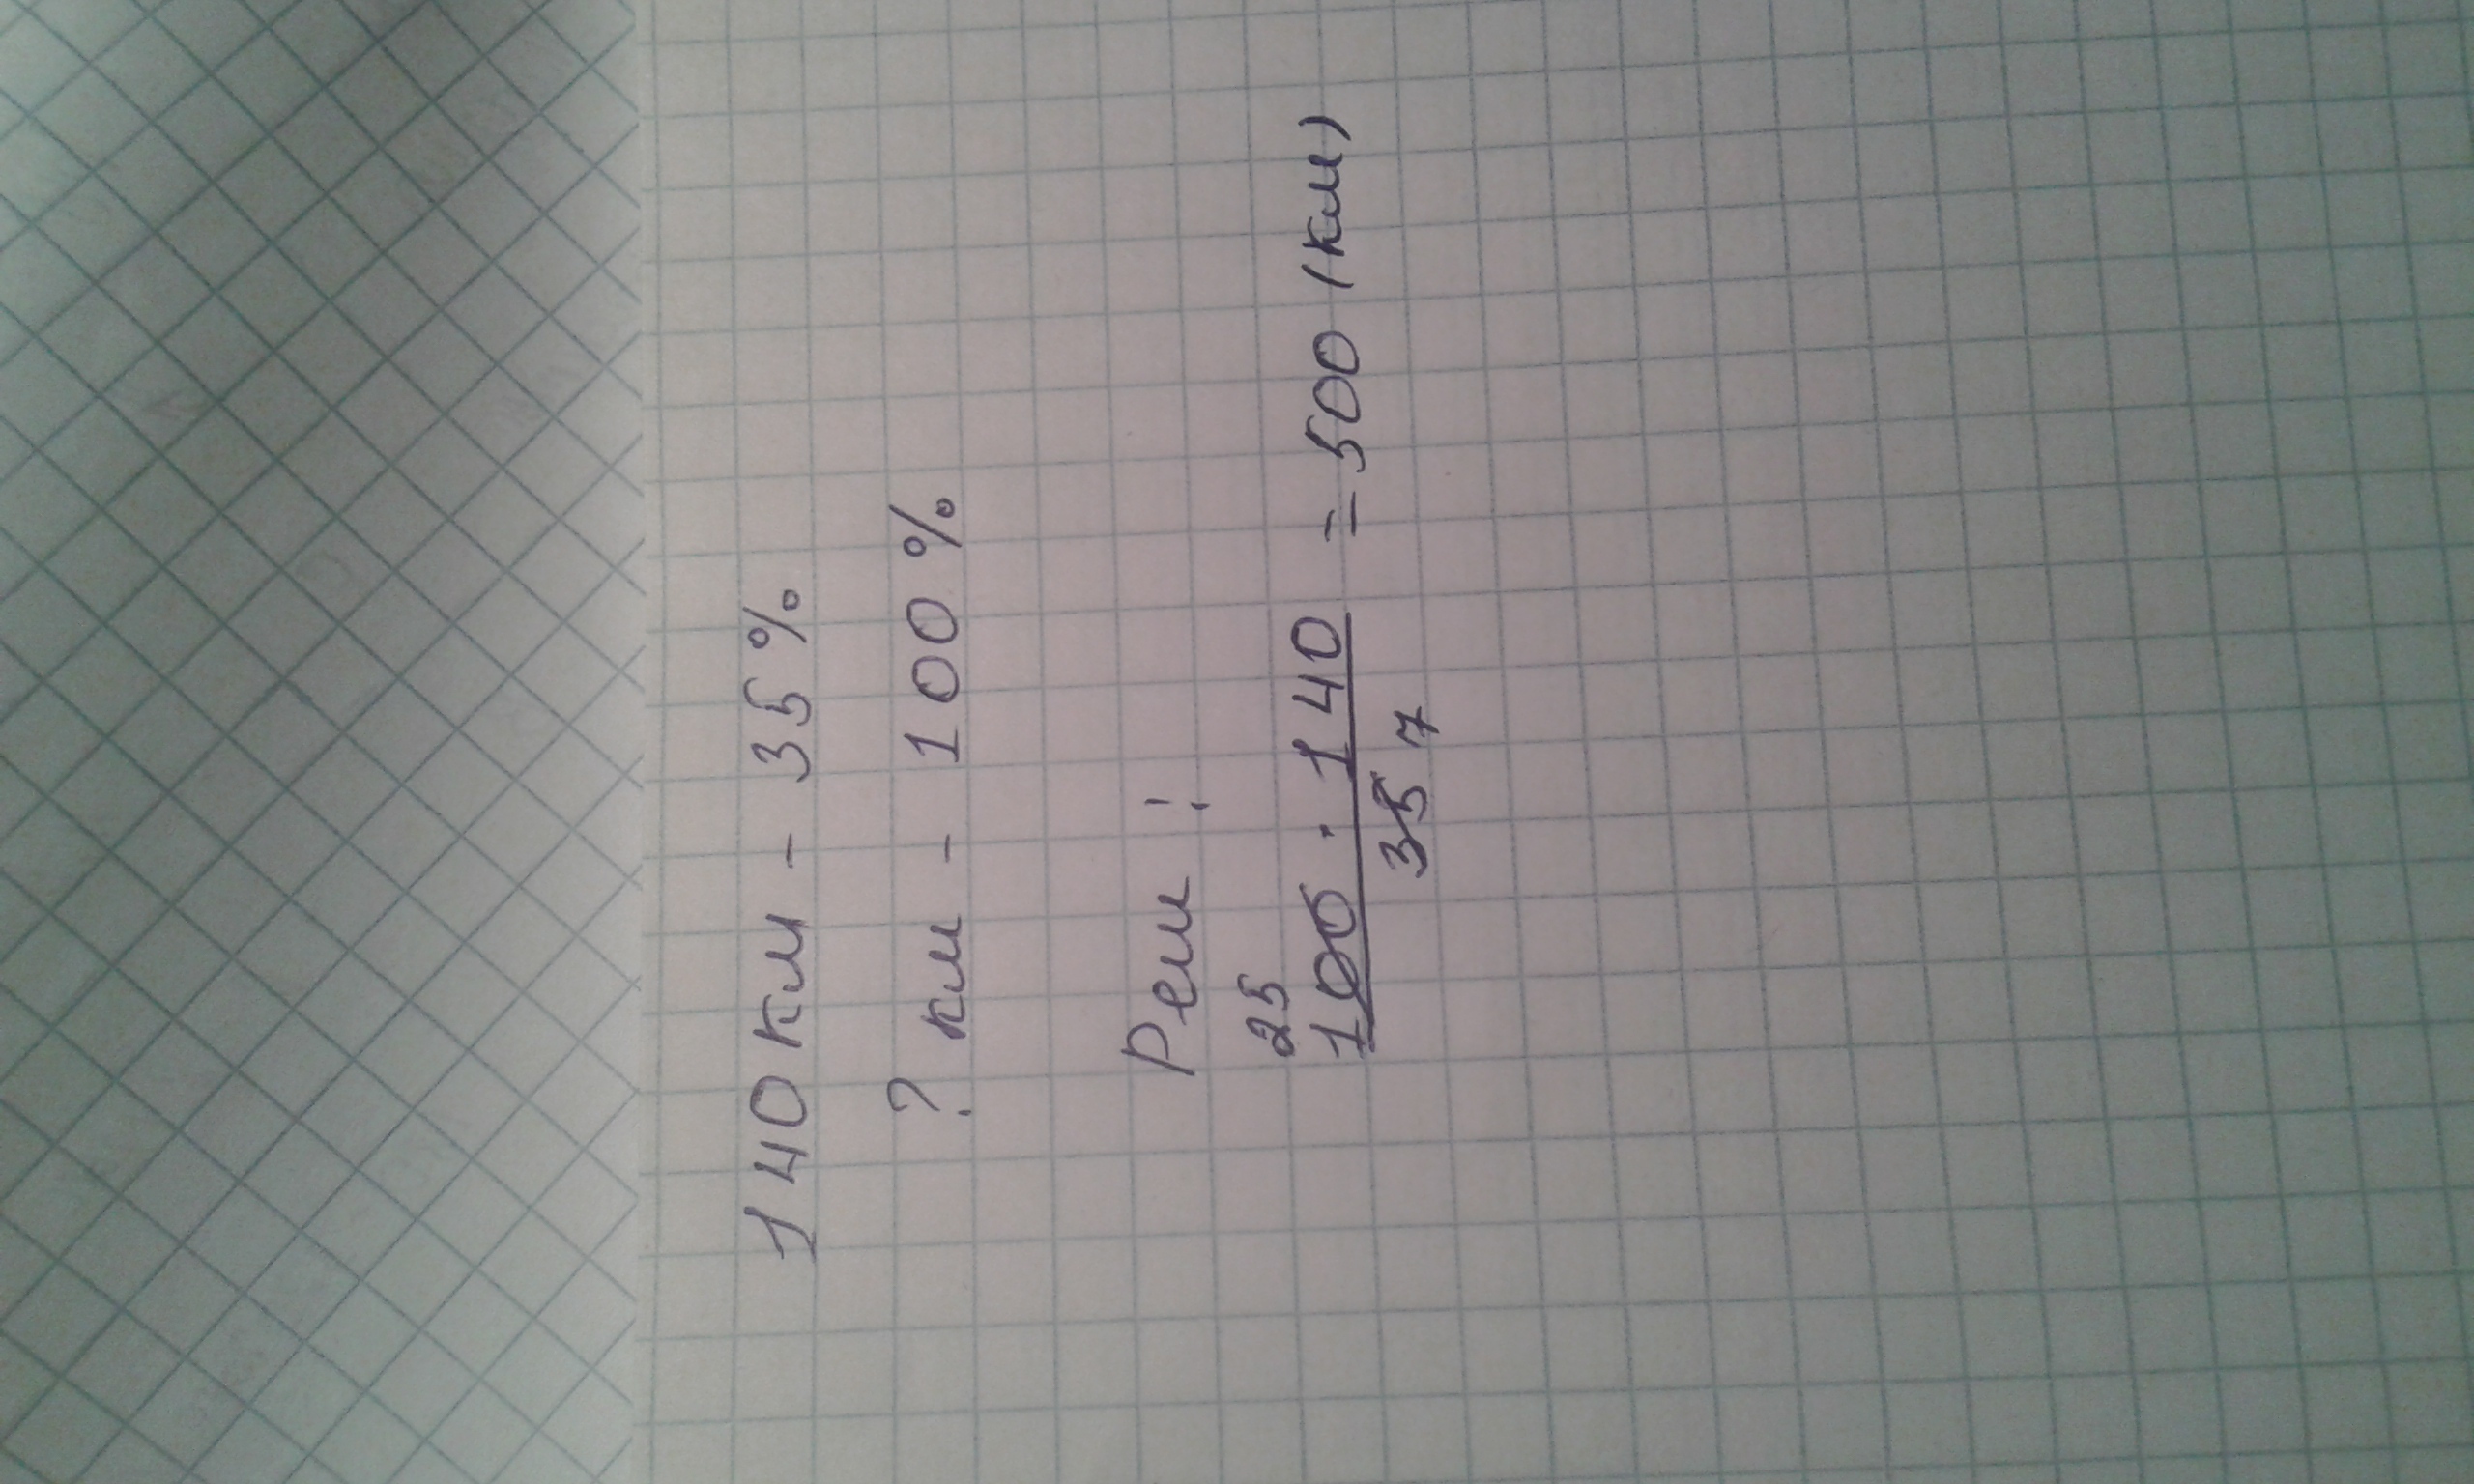 140 км - 35%
? км - 100%
Реш:
25
100 · 140 = 500 (км)
35 7